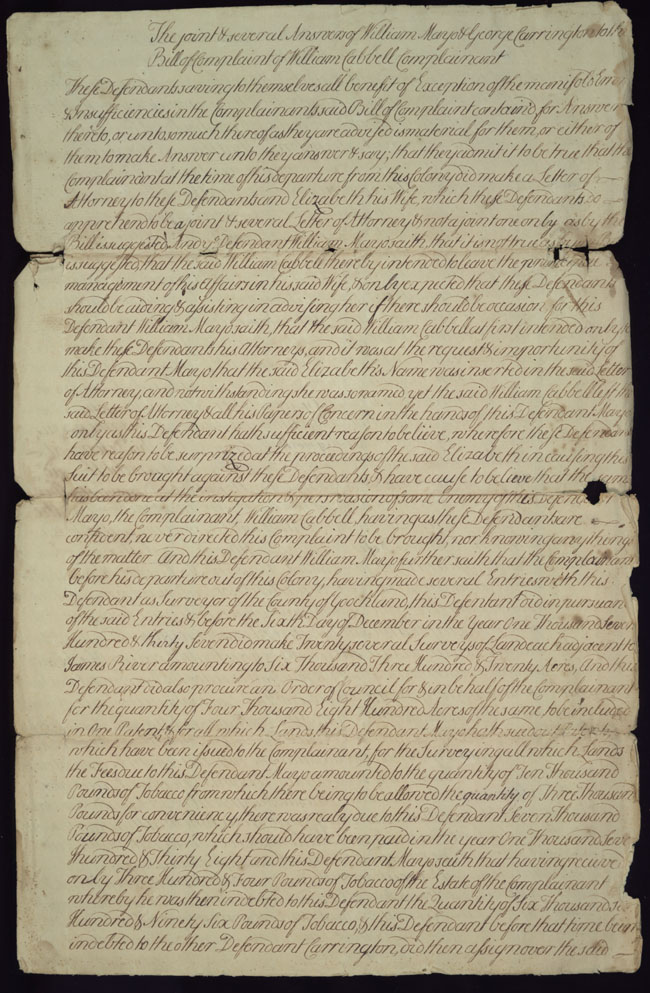 The joint & several Answers of William Mayo & George Carrington to the
Bill of Complaint of William Cabbell Complainant
These Defendants saving to themselves all benefit of Exception of the manifold
& insufficiencies in the Complainants said Bill of Complaint contain'd, for Answer
thereto, or unto so much thereof as they are advised is material for them, or either of
them to make Answer unto they answer & say; that they admit it to be true that the
Complainant at the time of his departure from this Colony did make a Letter of
Attorney to these Defendants and Elizabeth his Wife, which these Defendants do
apprehend to be a joint & several Letter of Attorney & not a joint one only as by the
Bill is suggested And ye Defendant William Mayo saith, that it is not true as
is suggested, that the said William Cabbell thereby intended to leave the
management of his affairs in his said Wife, & only expected that these Defendants
should be aiding & assisting in advising her if there should be occasion for this
Defendant William Mayo saith, that the said William Cabbell at first intended only to
make these Defendants his Attorneys, and it was at the request & importunity of
this Defendant Mayo that the said Elizabeth's Name was inserted in the said Letter
of Attorney, and notwithstanding she was so named yet the said William Cabbell left the
said Letter of Attorney & all his Papers of Concern in the hands of this Defendant Mayo
only as this Defendant hath sufficient reason to believe, wherefore these Defendants
have reason to be surpriz'd at the proceedings of the said Elizabeth in causing this
Suit to be brought against these Defendants, & have cause to believe that the same
has been done at the instigation & perswasion of some Enemy of this Defendant
Mayo, the Complainant, William Cabbell, having as these Defendants are
confident, never directed this Complaint to be brought, nor knowing any thing
of the matter. And this Defendant William Mayo further saith that the Complainant
before his departure out of this Colony, having made several Entries with this
Defendant as Surveyor of the County of Goochland, this Defendant did in pursuan
of the said Entries & before the Sixth Day of December in the Year One Thousand Seven
Hundred & thirty Seven did make Twenty several Surveys of Land each adjacent to
James River amounting to Six Thousand Three Hundred & Twenty Acres, And this
Defendant did also procure an Order of Council for & in behalf of the Complainant
for the quantity of Four Thousand Eight Hundred Acres of the same to be included
in One Patent, & for all which Lands this Defendant Mayo hath sued out
which have been issued to the Complainant, for the Surveying all which Lands
the Fees due to this Defendant Mayo amounted to the quantity of Ten Thousand
Pounds of Tobacco from which there being to be allowed the quantity of Three Thousand
Pounds for conveniency, there was really due to this Defendant Seven Thousand
Pounds of Tobacco, which should have been paid in the year One Thousand Seve
Hundred & Thirty Eight and this Defendant Mayo saith that having receive
only Three Hundred & Four Pounds of Tobacco of the Estate of the Complainant
whereby he was then indebted to this Defendant the Quantity of Six Thousand Six
Hundred & Ninety Six Pounds of Tobacco, & this Defendant before that time been
indebted to the other Defendant Carrington, did then assign over the said